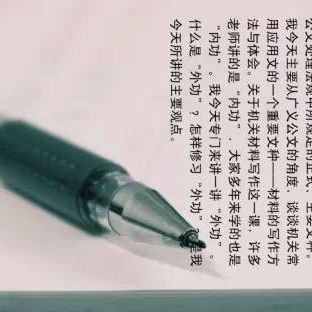 公文处理法规中所规定的正式、主要文种。
我今天主要从广义公文的角度，谈谈机关常
用应用文的一个重要文种——材料的写作方
法与体会。关于机关材料写作这一课，许多
老师讲的是“内功”，大家多年来学的也是
“内功”。我今天专门来讲一讲“外功”。
什么是“外功”？怎样修习“外功”？是我
今天所讲的主要观点。